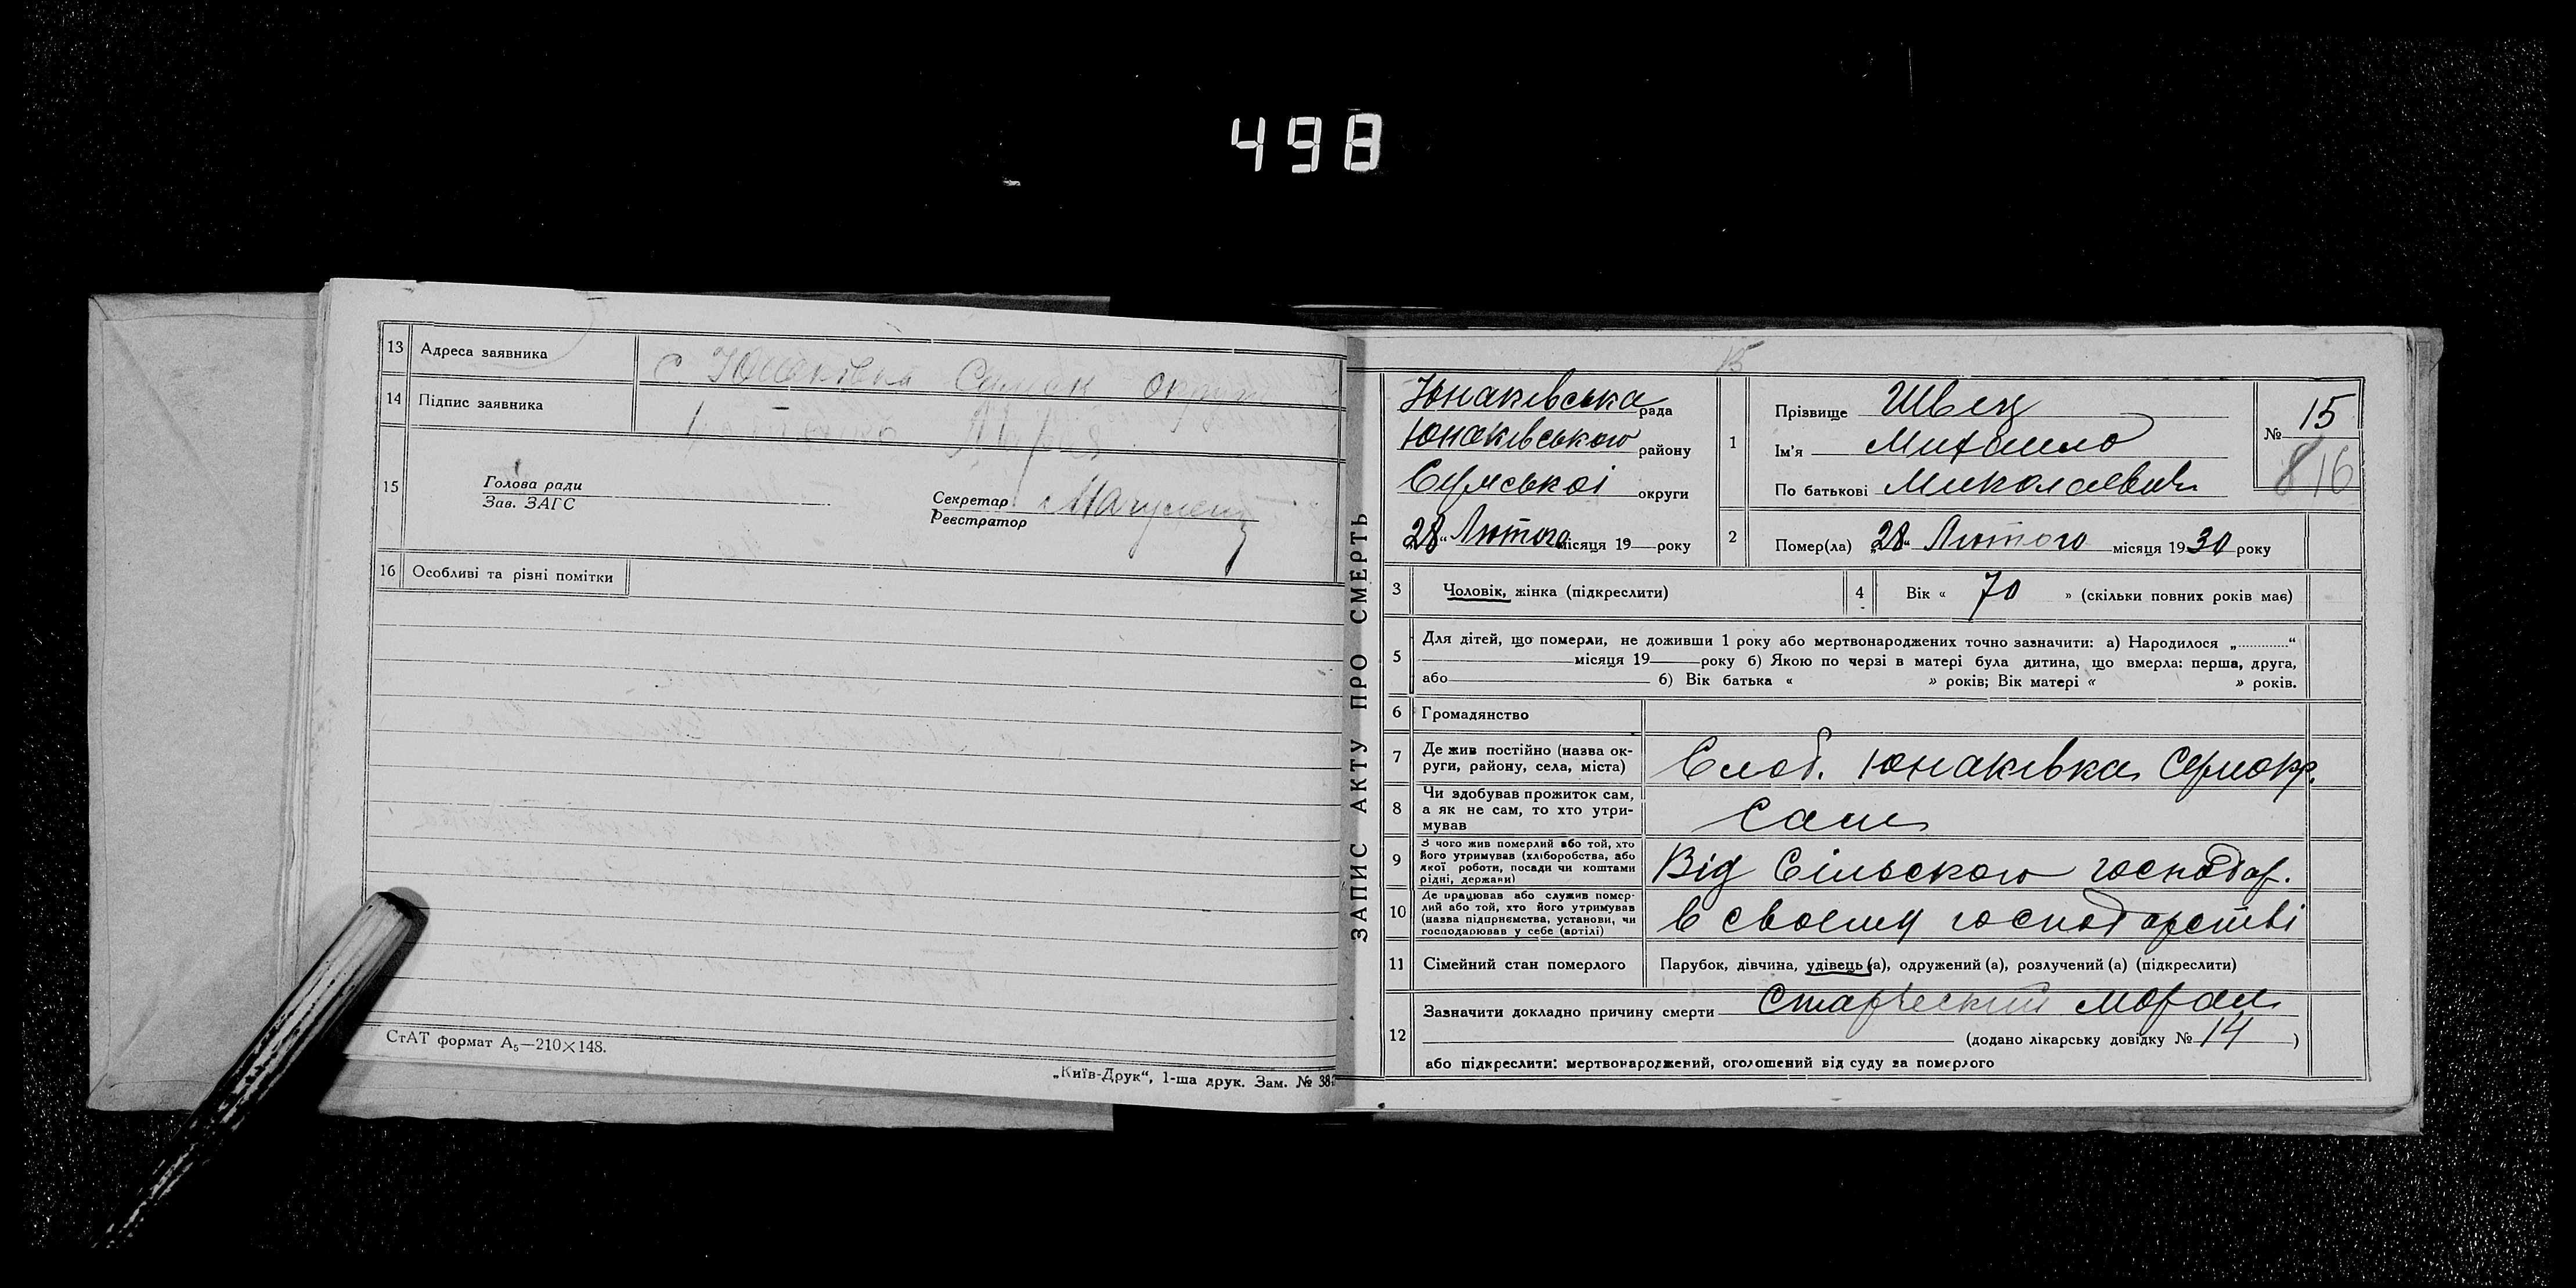 498
13 Адреса заявника с. Юнаківка Сумськ округи
14 Підпис заявника
15 Голова ради
Зав. ЗАГС
Секретар
Реєстратор
16 Особливі та різні помітки
СтАТ формат А₅—210×148.
„Київ-Друк“, 1-ша друк. Зам. № 38
ЗАПИС АКТУ ПРО СМЕРТЬ
15
Юнаківська рада
Юнаківського району
Сумської округи
„28“ Лютого місяця 19 року
1 Прізвище Швец
Ім'я Михаило
По батькові Миколаевич
№ 15
816
2 Помер(ла) „28“ Лютого місяця 1930 року
3 Чоловік, жінка (підкреслити)
4 Вік « 70 » (скільки повних років має)
5 Для дітей, що померли, не доживши 1 року або мертвонароджених точно зазначити: а) Народилося „............“
місяця 19 року б) Якою по черзі в матері була дитина, що вмерла: перша, друга,
або б) Вік батька « » років; Вік матері « » років.
6 Громадянство
7 Де жив постійно (назва ок-
руги, району, села, міста) Слоб. Юнаківка Сумокр.
8 Чи здобував прожиток сам,
а як не сам, то хто утри-
мував Сам
9 З чого жив померлий або той, хто
його утримував (хліборобства, або
якої роботи, посади чи коштами
рідні, держави) Від Сільского господар.
10 Де працював або служив помер-
лий або той, хто його утримував
(назва підприємства, установи, чи
господарював у себе (артілі) в своему господарстві
11 Сімейний стан померлого Парубок, дівчина, удівець (а), одружений (а), розлучений (а) (підкреслити)
12 Зазначити докладно причину смерти Старческий моразм
(додано лікарську довідку № 14 )
або підкреслити: мертвонароджений, оголошений від суду за померлого